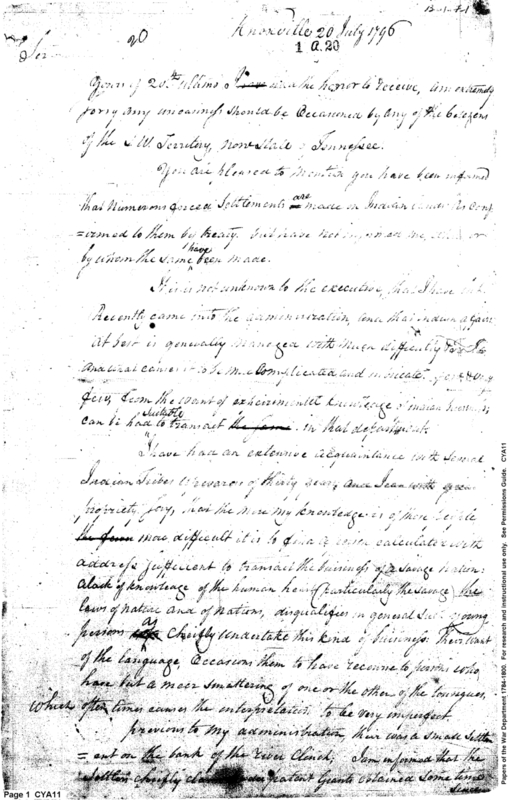 Knoxville 20 July 1796
1 a.20
Sir
20
Yours of 20th ultimo I have had the honor to receive, am extremely
sorry any uneasiness should be Occasioned by any of the Citizens
of the S.W. Territory, now State of Tennessee.
You are pleased to mention you have been informed
that numerous forced Settlements are made on Indian lands Conf
=irmed to them by treaty but have not informed me, or
by whom the same have been made.
It is not unknown to the executive, that I have but
Recently came into the administration, and that Indian affairs
at best is generally managed with much difficulty
and complicated and intricate, very
few, from the want of experimental knowledge of Indian
can be had suitable to transact the same in that department.
I have had an extensive acquaintance with several
Indian Tribes upwards of thirty years, and I can with great
propriety say, that the more my knowledge is of those people
the more difficult it is to find a person calculated with
address sufficient to transact the business of a savage nation:
a lack of knowledge of the human heart (particularly the savage) the
laws of nature and of nations, disqualifies in general such young
persons as Chiefly undertake this kind of business. Their want
of the language, Occasions them to have recourse to persons who
have but a meer smattering of one or the other of the tongues,
which often times causes the interpretation to be very imperfect
previous to my administration, their was a small Settle
=ent on the bank of the river Clinch, I am informed that the
Settlers chiefly claim under patent Grants obtained some time
since
Page 1 CYA11
Papers of the War Department 1784-1800. For research and instructional use only. See Permissions Guide. CYA11